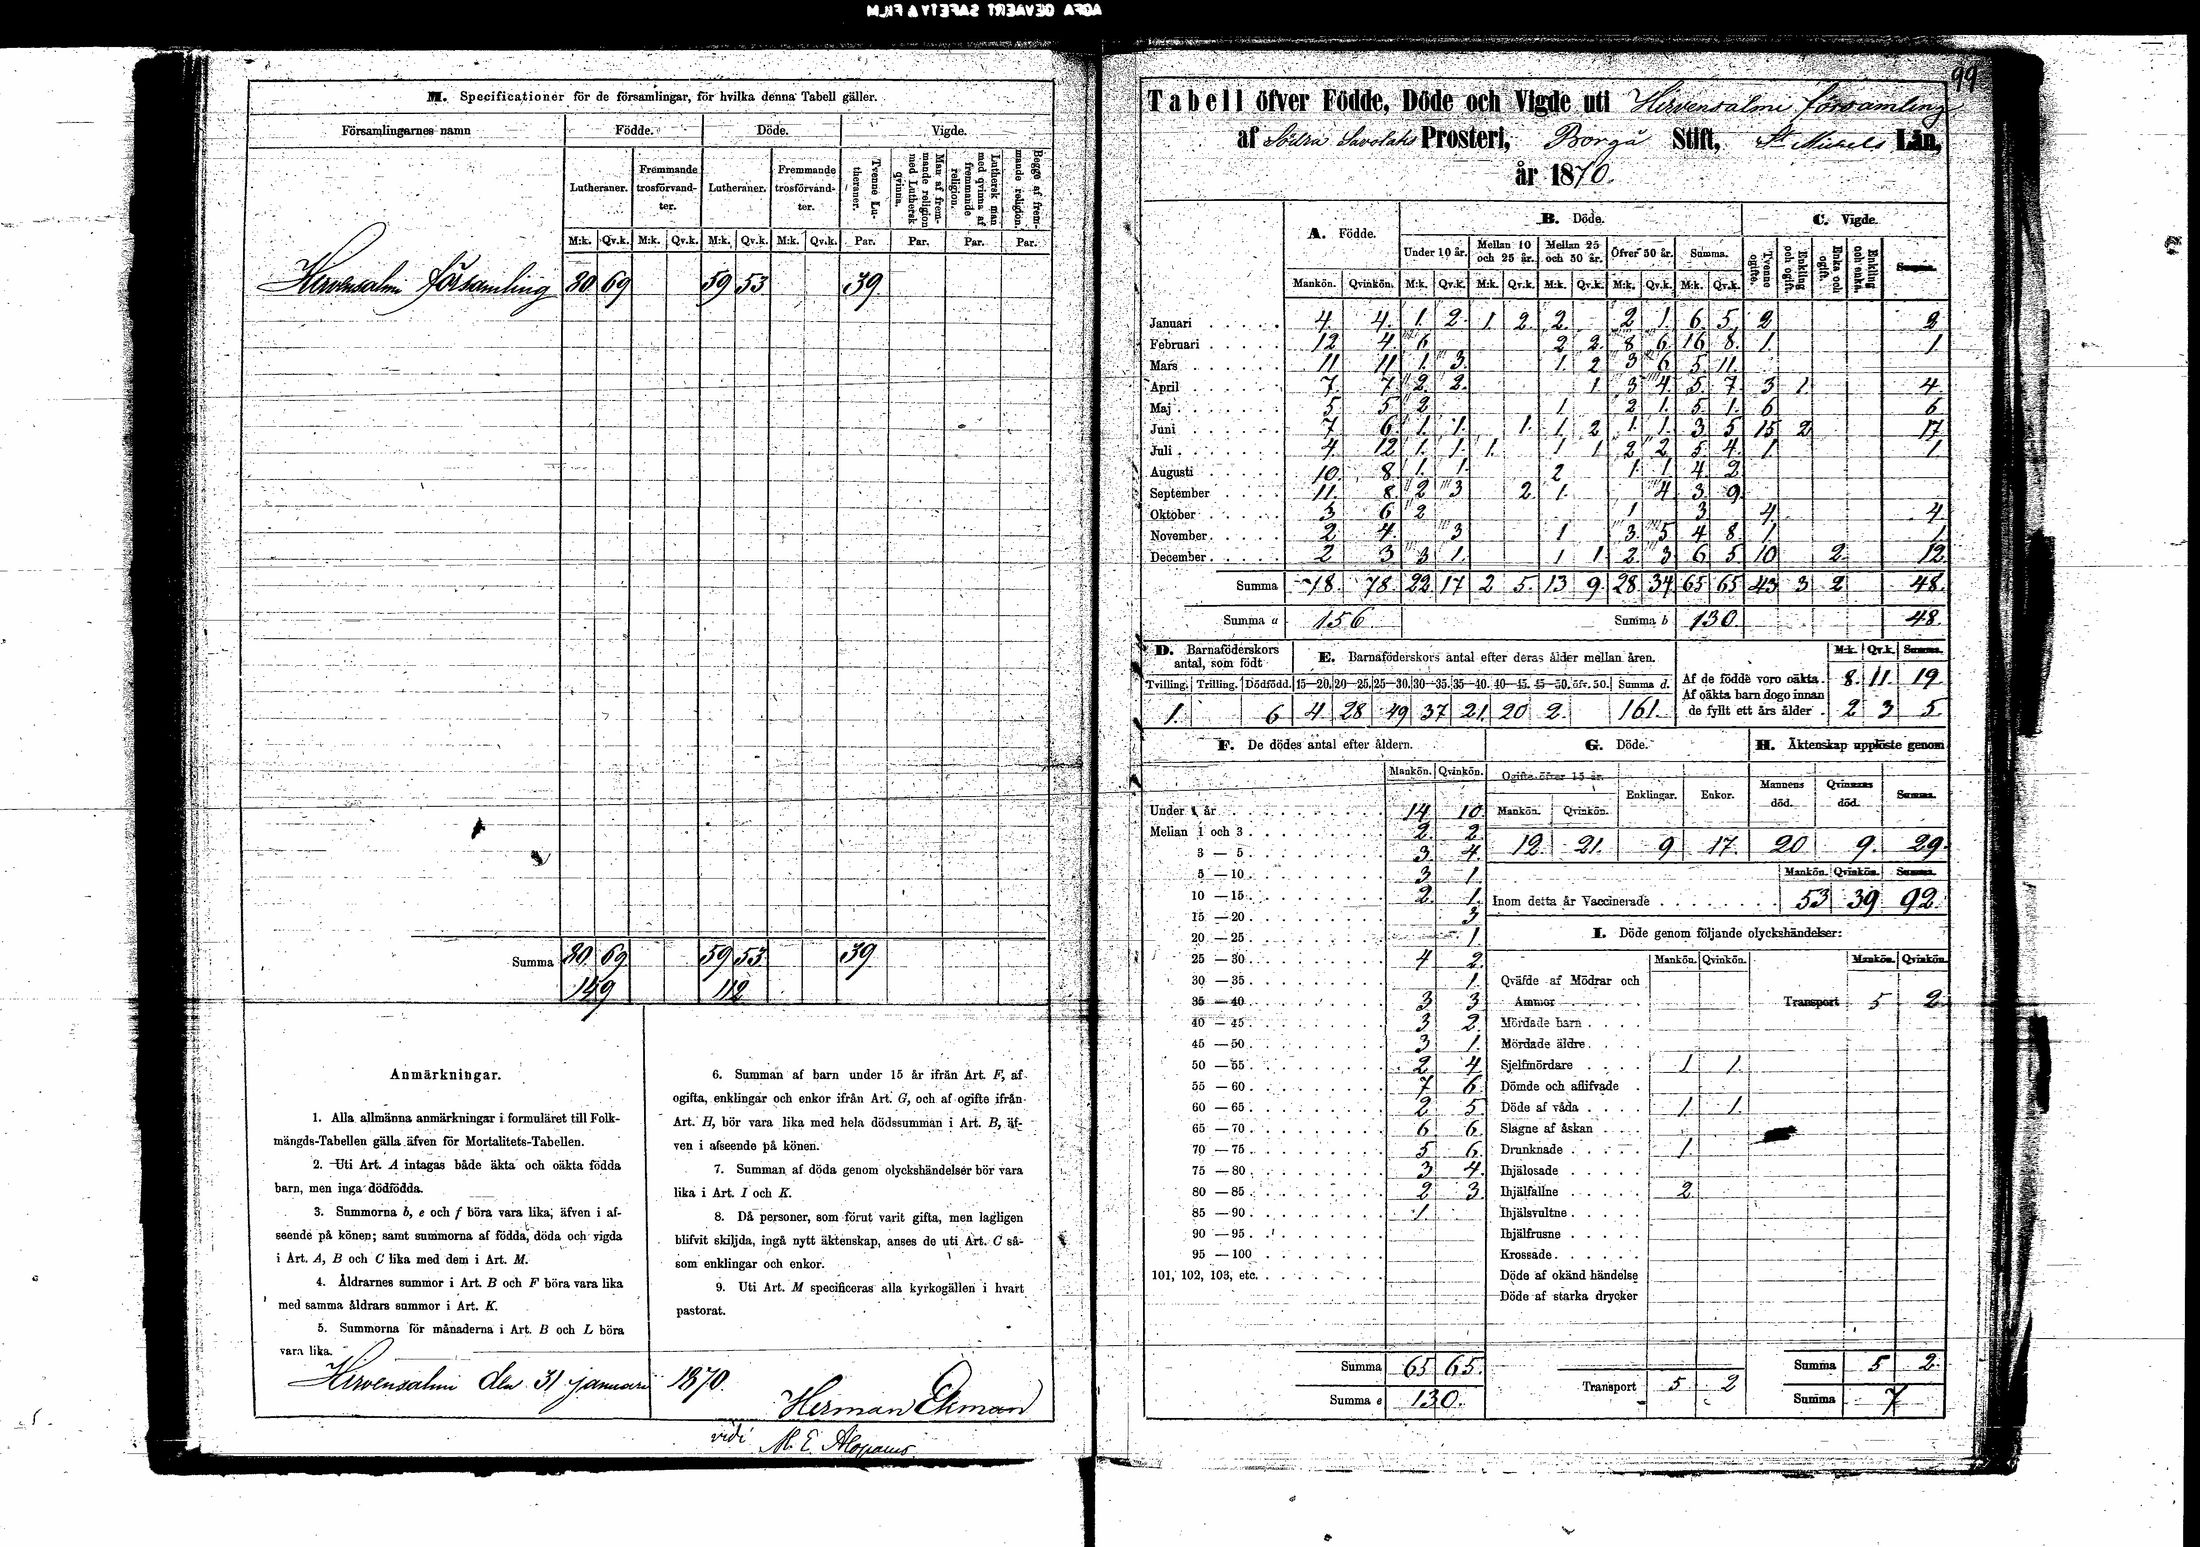 AGFA GEVAERT SAFETY FILM
M. Specificationer för de församlingar, för hvilka denna Tabell gäller.
Församlingarnes namn Födde. Döde. Vigde.
Lutheraner. Fremmande trosförvandter. Lutheraner. Fremmande trosförvandter. Tvenne Lutheraner. Man af fremmande religion med Luthersk qvinna. Luthersk man med qvinna af fremmande religion. Begge af fremmande religion.
M:k. Qv.k. M:k. Qv.k. M:k. Qv.k. M:k. Qv.k. Par. Par. Par. Par.
Hirvensalmi församling 80 69 59 53 39
Summa 80 69 59 53 39
149 112
Anmärkningar.
1. Alla allmänna anmärkningar i formuläret till Folk-
mängds-Tabellen gälla äfven för Mortalitets-Tabellen.
2. Uti Art. A intagas både äkta och oäkta födda
barn, men inga dödfödda.
3. Summorna b, e och f böra vara lika, äfven i af-
seende på könen; samt summorna af födda, döda och vigda
i Art. A, B och C lika med dem i Art. M.
4. Åldrarnes summor i Art. B och F böra vara lika
med samma åldrars summor i Art. K.
5. Summorna för månaderna i Art. B och L böra
vara lika.
6. Summan af barn under 15 år ifrån Art. F, af
ogifta, enklingar och enkor ifrån Art. G, och af ogifte ifrån
Art. H, bör vara lika med hela dödssumman i Art. B, äf-
ven i afseende på könen.
7. Summan af döda genom olyckshändelser bör vara
lika i Art. I och K.
8. Då personer, som förut varit gifta, men lagligen
blifvit skiljda, ingå nytt äktenskap, anses de uti Art. C så-
som enklingar och enkor.
9. Uti Art. M specificeras alla kyrkogällen i hvart
pastorat.
Hirvensalmi den 31 januari 1870.
Herman Ekman
vidi M. E. Alopaeus
99
Tabell öfver Födde, Döde och Vigde uti Hirvensalmi församling
af Södra Savolaks Prosteri, Borgå Stift, St Mickels Län,
år 1870.
A. Födde. B. Döde. C. Vigde.
Under 10 år. Mellan 10 och 25 år. Mellan 25 och 50 år. Öfver 50 år. Summa. Tvenne ogifte. Enkling och ogift. Enka och ogift. Enkling och enka. Summa.
Mankön. Qvinkön. M:k. Qv.k. M:k. Qv.k. M:k. Qv.k. M:k. Qv.k. M:k. Qv.k.
Januari 4. 4. 1. 2. 1. 2. 2. 2 1. 6. 5. 2 2
Februari 12 4. 6 2 2. 8 6. 16 8. 1. 1.
Mars 11 11 1. 3. 1. 2 3 6 5 11.
April 7. 7. 2 2. 1 3 4. 5 7 3 1. 4.
Maj 5 5 2 1. 2 1. 5. 1. 6 6
Juni 7 6. 1. 1. 1. 1 2 1. 1. 3 5 15 2 17
Juli 4. 12 1. 1. 1. 1 1 2 2 5 4. 1 1
Augusti 10. 8 1. 1. 2 1 1 4 2
September 11. 8. 2 3 2 1. 4 3 9.
Oktober 3 6 2 1 3 4. 4
November 2 4. 3 1 3 5 4 8 1. 1
December 2 3 3 1. 1 1 2 3 6 5 10 2. 12
Summa 78. 78. 22. 17 2 5. 13 9. 28 34 65 65 43 3 2 48.
Summa a 156 Summa b 130. 48.
D. Barnaföderskors antal, som födt E. Barnaföderskors antal efter deras ålder mellan åren.
Tvilling. Trilling. Dödfödd. 15—20. 20—25. 25—30. 30—35. 35—40. 40—45. 45—50. öfv. 50. Summa d.
1. 6 4 28 49 37 21. 20 2. 161.
M:k. Qv.k. Summa.
Af de födde voro oäkta 8. 11. 19
Af oäkta barn dogo innan
de fyllt ett års ålder 2 3 5.
F. De dödes antal efter åldern.
Mankön. Qvinkön.
Under 1 år 14 10.
Mellan 1 och 3 2 2
3 — 5 3 4.
5 — 10 3 1.
10 — 15 2 1.
15 — 20 3
20 — 25 1.
25 — 30 4 2
30 — 35 1.
35 — 40 3 3
40 — 45 3 2.
45 — 50 3 1.
50 — 55 2 4
55 — 60 7 6.
60 — 65 2 5
65 — 70 6 6.
70 — 75 5 6
75 — 80 3 4.
80 — 85 2 3.
85 — 90 1.
90 — 95
95 — 100
101, 102, 103, etc.
Summa 65 65.
Summa e 130.
G. Döde. H. Äktenskap upplöste genom
Ogifte öfver 15 år. Enklingar. Enkor. Mannens död. Qvinnans död. Summa.
Mankön. Qvinkön.
12. 21. 9 17. 20 9. 29.
Mankön. Qvinkön. Summa.
Inom detta år Vaccinerade 53 39 92.
I. Döde genom följande olyckshändelser:
Mankön. Qvinkön. Mankön. Qvinkön.
Qväfde af Mödrar och
Ammor Transport 5 2
Mördade barn
Mördade äldre
Sjelfmördare 1 1.
Dömde och aflifvade
Döde af våda 1 1.
Slagne af åskan
Drunknade 1.
Ihjälosade
Ihjälfallne 2.
Ihjälsvultne
Ihjälfrusne
Krossade
Döde af okänd händelse
Döde af starka drycker
Summa 5 2.
Transport 5 2
Summa 7